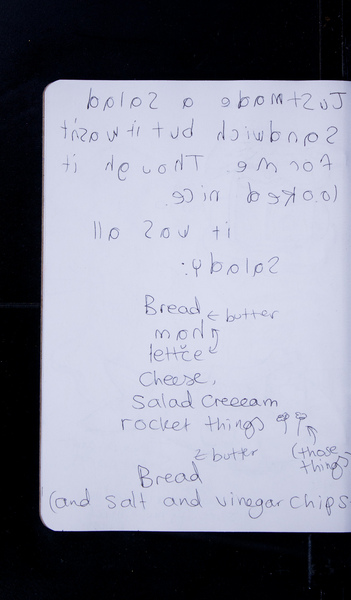 Just made a salad
sandwich but it wasnt
for me. Though it
looked nice.
it was all
salady:
Bread ← butter
lettce
cheese,
Salad Creeeam
rocket things
← butter (those
things)
Bread
(and salt and vinegar chips